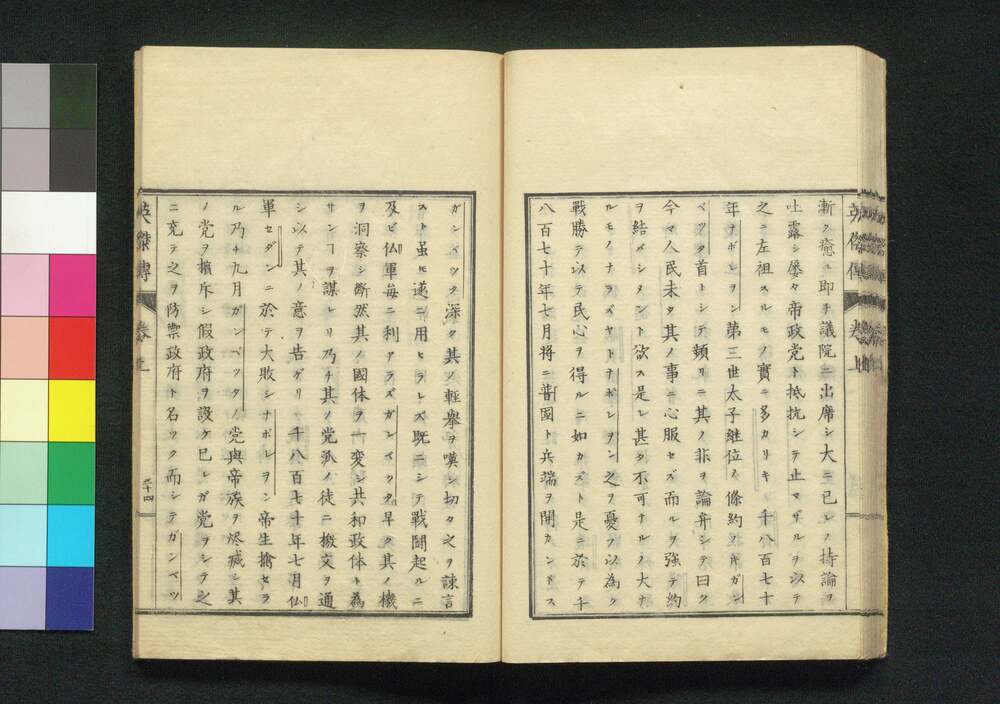 漸ク癒ユ即チ議院ニ出席シ大ニ已レノ持論ヲ
吐露シ屡々帝政党ト抵抗シテ止マザルヲ以テ
之ニ左袒スルモノ實ニ多カリキ千八百七十
年ナポレヲン第三世太子継位ノ條約ノ件ガン
ベツタ首トシテ頻リニ其ノ非ヲ論弁シテ曰ク
今マ人民未タ其ノ事ニ心服セズ而ルヲ強テ約
ヲ結バシメント欲ス是レ甚タ不可ナルノ大ナ
ルモノナラズヤトナポレヲン之ヲ憂フ以為ク
戰勝テ以テ民心ヲ得ルニ如カズト是ニ於テ千
八百七十年七月將ニ普國ト兵端ヲ開カントス
ガンベツタ深ク其ノ輕擧ヲ嘆シ切タ之ヲ諫言
スト虽ヒ遂ニ用ヒラレズ既ニシテ戰鬪起ルニ
及ビ仏軍毎ニ利アラズガンベツタ早ク其ノ機
ヲ洞察シ断然其ノ國体ヲ一変シ共和政体ト為
サンヿヲ謀レリ乃チ其ノ党派ノ徒ニ檄文ヲ通
シ以テ其ノ意ヲ告ゲリ千八百七十年七月仏
軍セダンニ於テ大敗シナポレヲン帝生擒セラ
ル乃チ九月ガンベツタノ党與帝族ヲ燼滅シ其
ノ党ヲ擯斥シ假政府ヲ設ケ已レガ党ヲシテ之
ニ充テ之ヲ防禦政府ト名ツク而シテガンベツ
英傑傳
卷之上
二十四